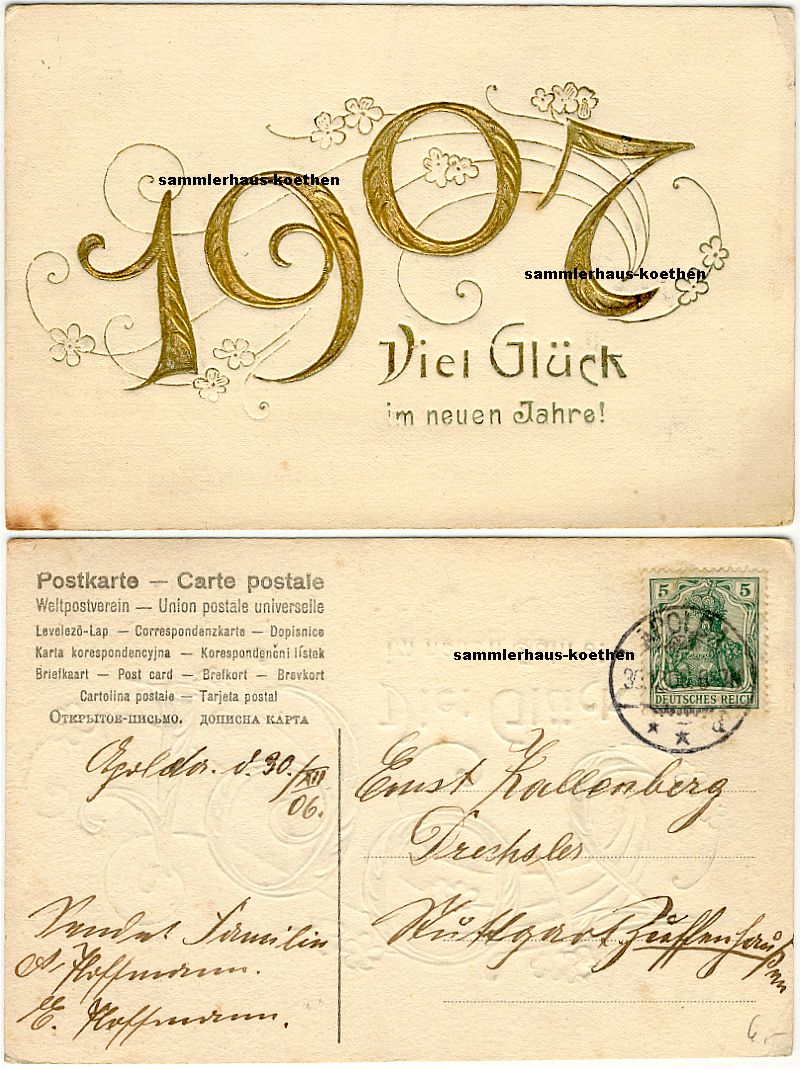 1907
sammlerhaus-koethen
sammlerhaus-koethen
Viel Glück
im neuen Jahre!
Postkarte — Carte postale
Weltpostverein — Union postale universelle
Levelező-Lap — Correspondenzkarte — Dopisnice
Karta korespondencyjna — Korespondenční lístek
Briefkaart — Post card — Brefkort — Brevkort
Cartolina postale — Tarjeta postal
Открытое-письмо. дописна карта
5 5
DEUTSCHES REICH
sammlerhaus-koethen
Apolda. d. 30./XII
06.
Ernst Kallenberg
Drechsler
Stuttgart Zuffenhausen
Sendet Familie
A. Hoffmann.
E. Hoffmann.
6,-